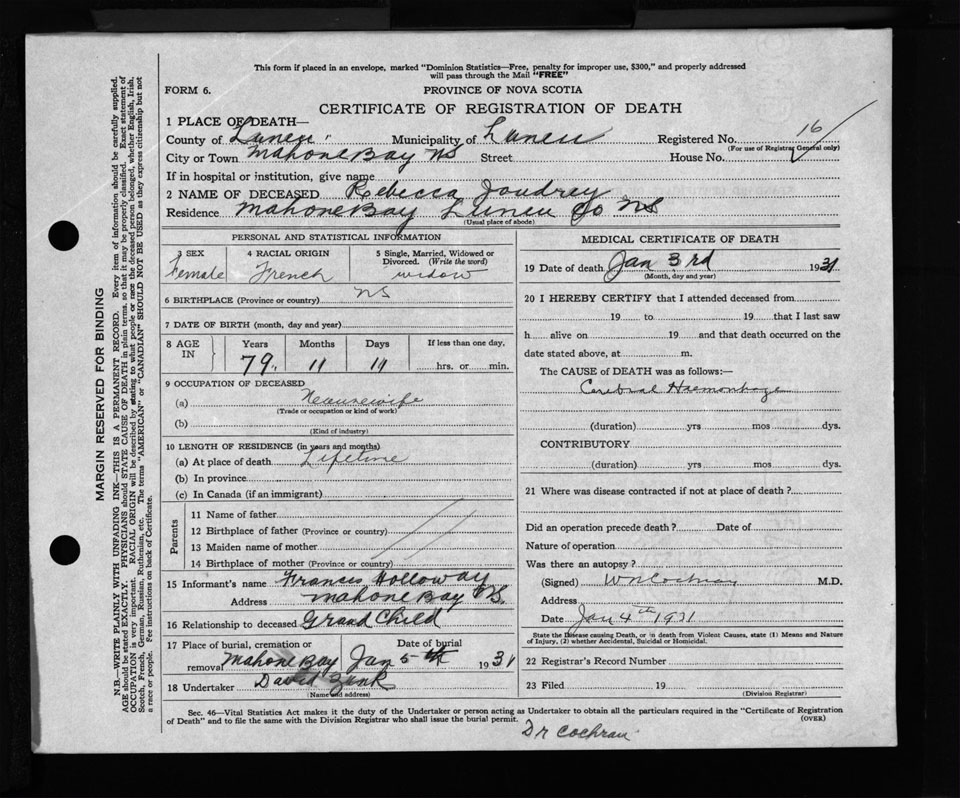 This form if placed in an envelope, marked "Dominion Statistics—Free, penalty for improper use, $300," and properly addressed
will pass through the Mail "FREE"
FORM 6.
PROVINCE OF NOVA SCOTIA
CERTIFICATE OF REGISTRATION OF DEATH
1 PLACE OF DEATH—
County of Lunen Municipality of Lunen Registered No. 16
(For use of Registrar General only)
City or Town Mahone Bay NS Street House No.
If in hospital or institution, give name
2 NAME OF DECEASED Rebecca Joudrey
Residence Mahone Bay Lunen Co NS
(Usual place of abode)
PERSONAL AND STATISTICAL INFORMATION
3 SEX Female
4 RACIAL ORIGIN French
5 Single, Married, Widowed or Divorced. (Write the word) widow
6 BIRTHPLACE (Province or country) NS
7 DATE OF BIRTH (month, day and year)
8 AGE IN Years Months Days If less than one day,
79 11 19 hrs. or min.
9 OCCUPATION OF DECEASED
(a) Housewife
(Trade or occupation or kind of work)
(b)
(Kind of industry)
10 LENGTH OF RESIDENCE (in years and months)
(a) At place of death Lifetime
(b) In province
(c) In Canada (if an immigrant)
Parents
11 Name of father
12 Birthplace of father (Province or country)
13 Maiden name of mother
14 Birthplace of mother (Province or country)
15 Informant's name Frances Holloway
Address Mahone Bay NS.
16 Relationship to deceased Grand Child
17 Place of burial, cremation or removal Mahone Bay Date of burial Jan 5th 1931
18 Undertaker David Zink
(Name and address)
MEDICAL CERTIFICATE OF DEATH
19 Date of death Jan 3rd 1931
(Month, day and year)
20 I HEREBY CERTIFY that I attended deceased from
19 to 19 that I last saw
h alive on 19 and that death occurred on the
date stated above, at m.
The CAUSE of DEATH was as follows:
Cerebral Haemorrhage
(duration) yrs mos dys.
CONTRIBUTORY
(duration) yrs mos dys.
21 Where was disease contracted if not at place of death?
Did an operation precede death? Date of
Nature of operation
Was there an autopsy?
(Signed) W N Cochran M.D.
Address
Date Jan 4th 1931
State the Disease causing Death, or in death from Violent Causes, state (1) Means and Nature
of Injury, (2) whether Accidental, Suicidal or Homicidal.
22 Registrar's Record Number
23 Filed 19
(Division Registrar)
Sec. 46—Vital Statistics Act makes it the duty of the Undertaker or person acting as Undertaker to obtain all the particulars required in the "Certificate of Registration
of Death" and to file the same with the Division Registrar who shall issue the burial permit.
(OVER)
Dr Cochran
MARGIN RESERVED FOR BINDING
N.B.—WRITE PLAINLY WITH UNFADING INK—THIS IS A PERMANENT RECORD. Every item of information should be carefully supplied.
AGE should be stated EXACTLY. PHYSICIANS should STATE CAUSE OF DEATH in plain terms, so that it may be properly classified. Exact statement of
OCCUPATION is very important. RACIAL ORIGIN will be described by stating to what people or race the deceased person belonged, whether English, Irish,
Scotch, French, German, Russian, Ruthenian, etc. The terms "AMERICAN" or "CANADIAN" SHOULD NOT BE USED as they express citizenship but not
a race or people. Fee instructions on back of Certificate.